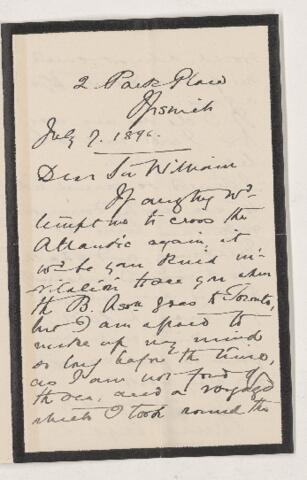 2 Park Place
Ipswich
July 7. 1896.
Dear Sir William
If anything wd
tempt me to cross the
Atlantic again, it
wd be your kind in-
vitation to see you when
the B. Assn. goes to Toronto,
but I am afraid to
make up my mind
so long before the time,
as I am not fond of
the sea, and a voyage
which I took round the